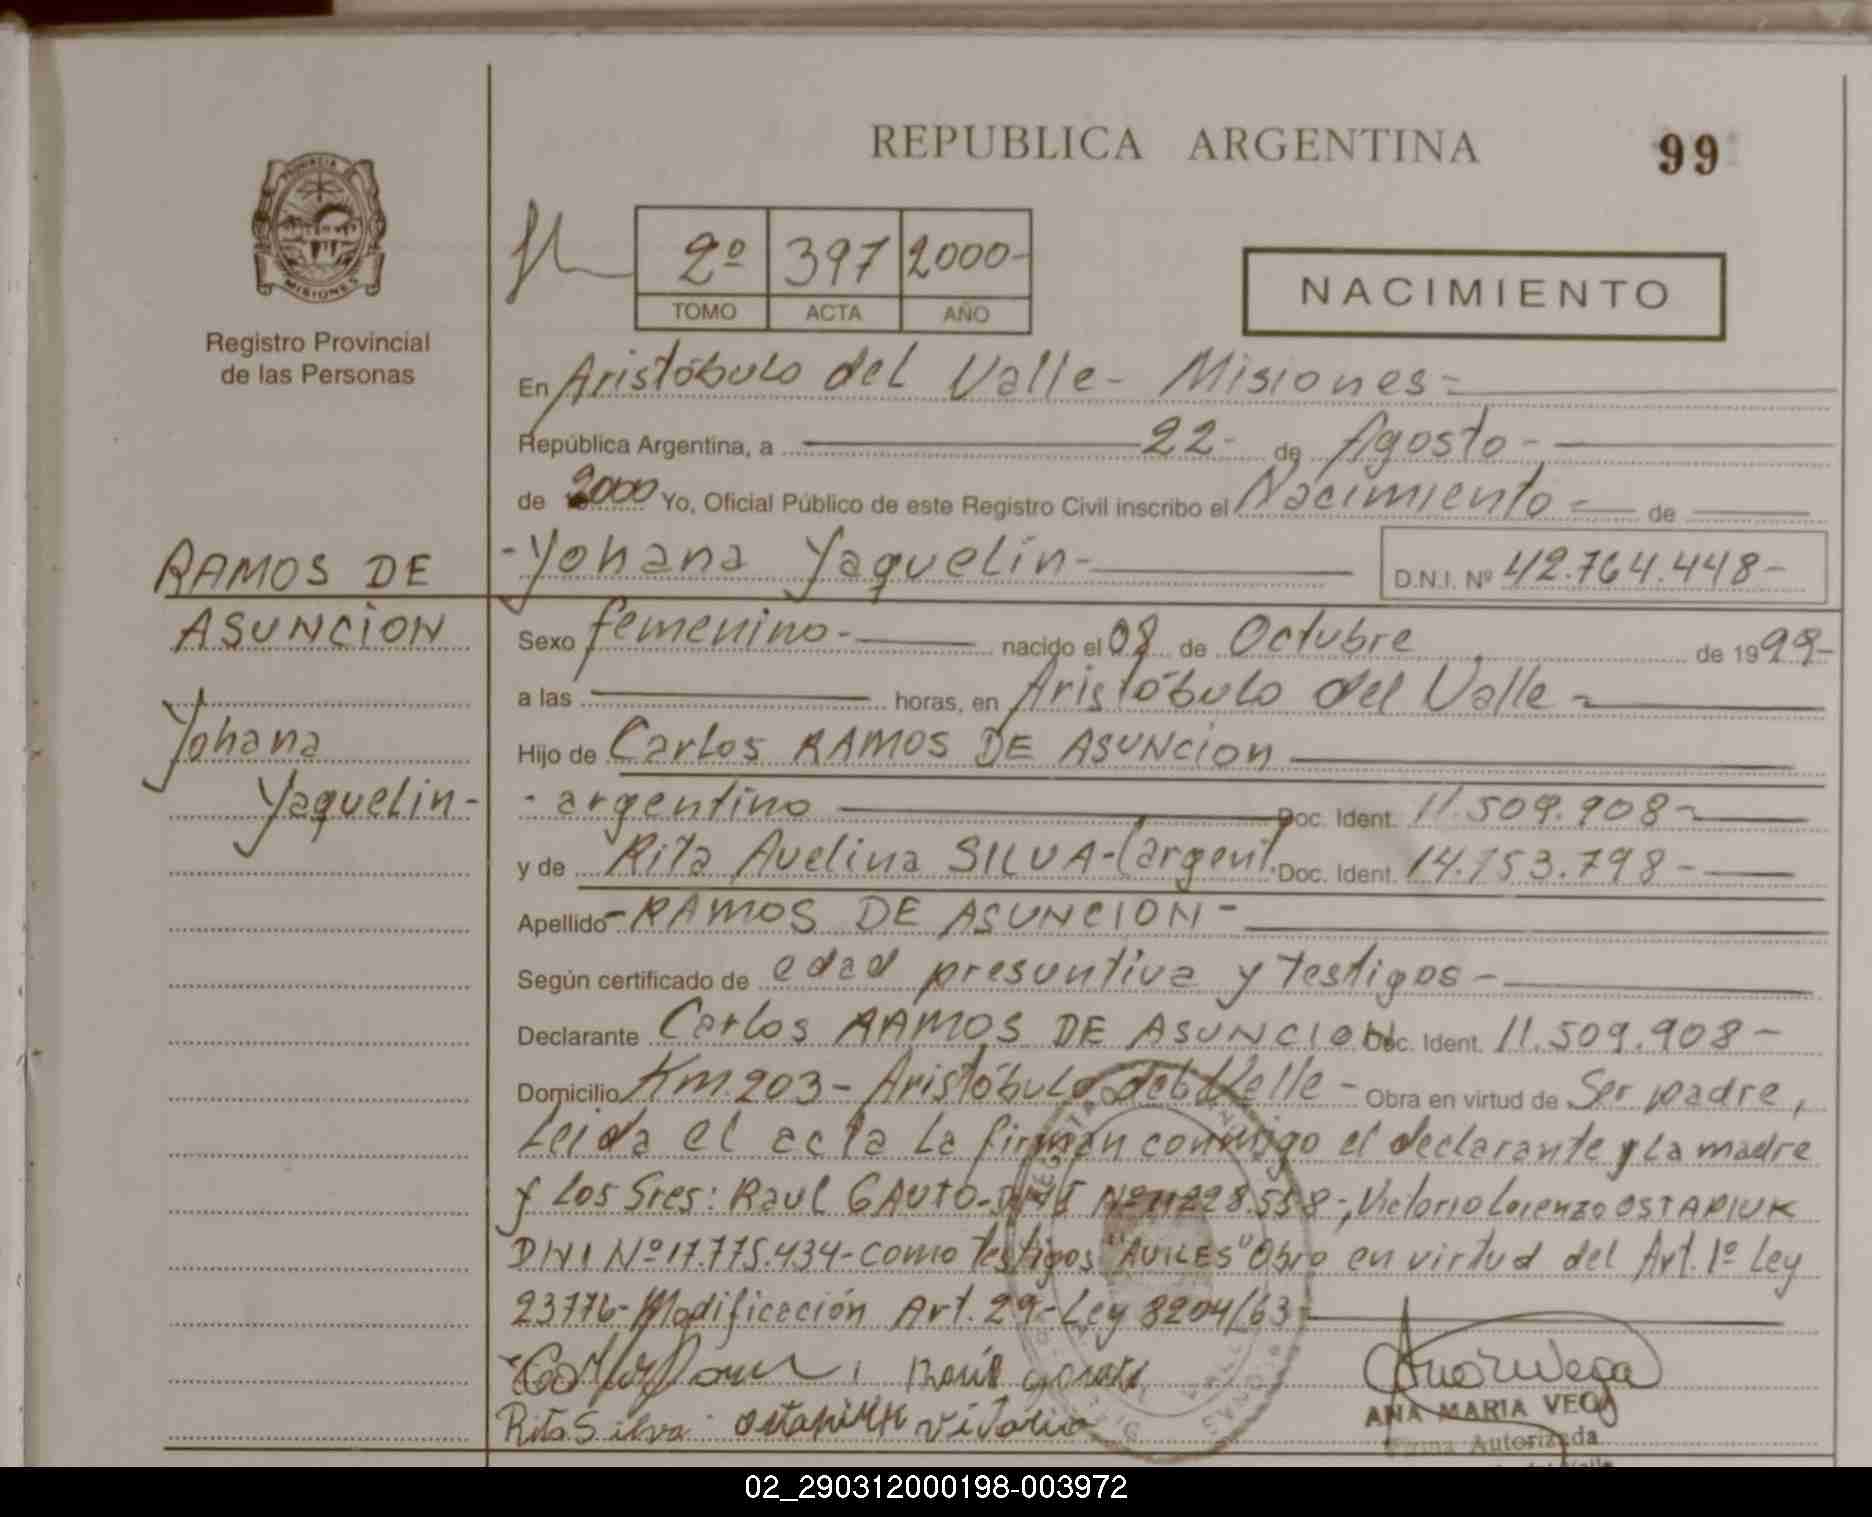 REPUBLICA ARGENTINA
99
PROVINCIA
MISIONES
Registro Provincial
de las Personas
2º 397 2000-
TOMO ACTA AÑO
NACIMIENTO
En Aristóbulo del Valle- Misiones-
República Argentina, a 22- de Agosto-
de 2000 Yo, Oficial Público de este Registro Civil inscribo el Nacimiento- de
RAMOS DE
ASUNCION
Yohana
Yaquelin-
-Yohana Yaquelin- D.N.I. Nº 42.764.448-
Sexo femenino- nacido el 08 de Octubre de 1999-
a las horas, en Aristóbulo del Valle-
Hijo de Carlos RAMOS DE ASUNCION
- argentino Doc. Ident. 11.509.908-
y de Rita Avelina SILVA-(argent. Doc. Ident. 14.153.798-
Apellido -RAMOS DE ASUNCION-
Según certificado de edad presuntiva y testigos-
Declarante Carlos RAMOS DE ASUNCION Doc. Ident. 11.509.908-
Domicilio Km 203- Aristóbulo del Valle- Obra en virtud de Ser padre,
Leida el acta la firman conmigo el declarante y La madre
y Los Sres: Raul GAUTO-DNI Nº 11228.558-, Victorio Lorenzo OSTAPIUK
DNI Nº 17.775.434- como testigos "AVILES" Obro en virtud del Art. 1º Ley
23776- Modificación Art. 29- Ley 8204/63-
Rita Silva Ostapiuk Vitorio
ANA MARIA VEGA
Firma Autorizada
02_290312000198-003972